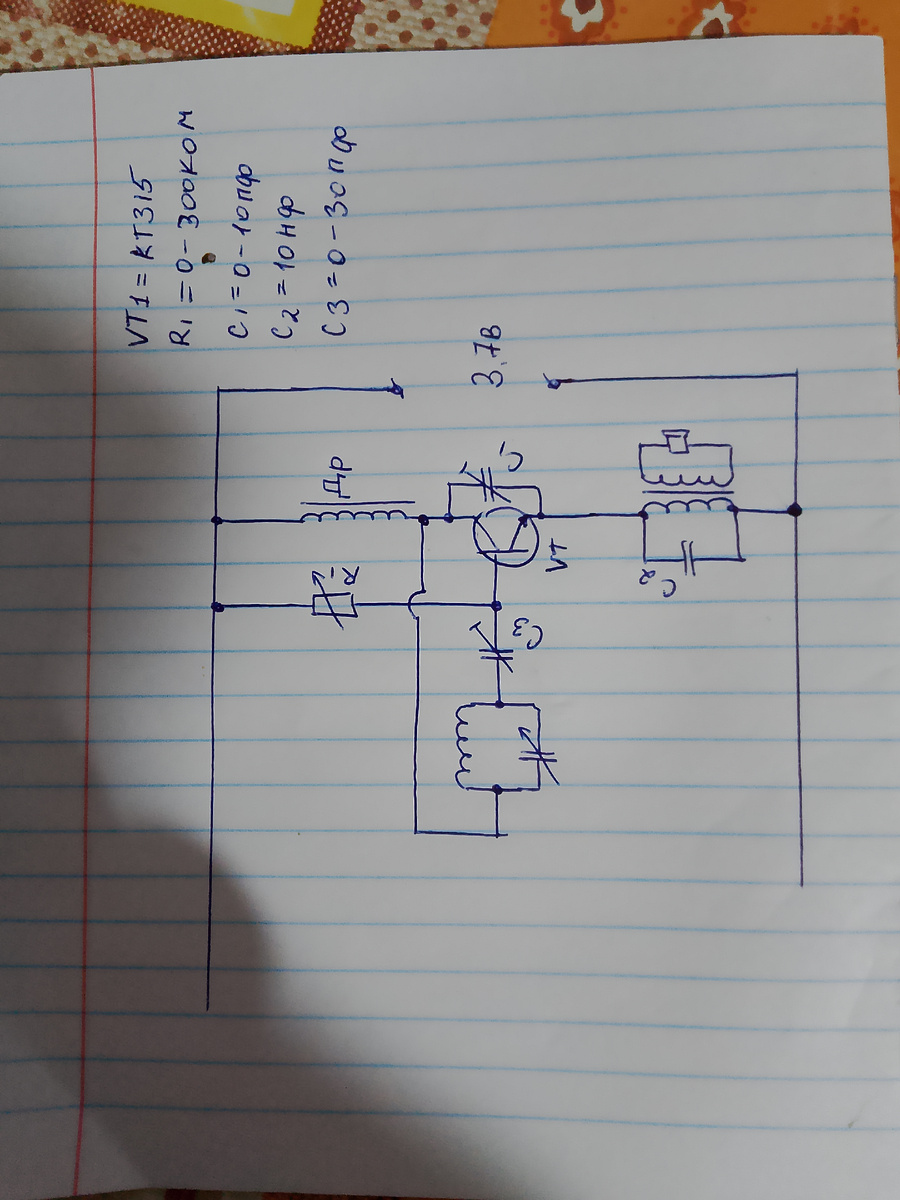 VT1 = KT315
R1 = 0-300KOM
C1 = 0-10пф
C2 = 10нф
C3 = 0-30пф
3.7в
Др
R1
C1
VT
C3
C2